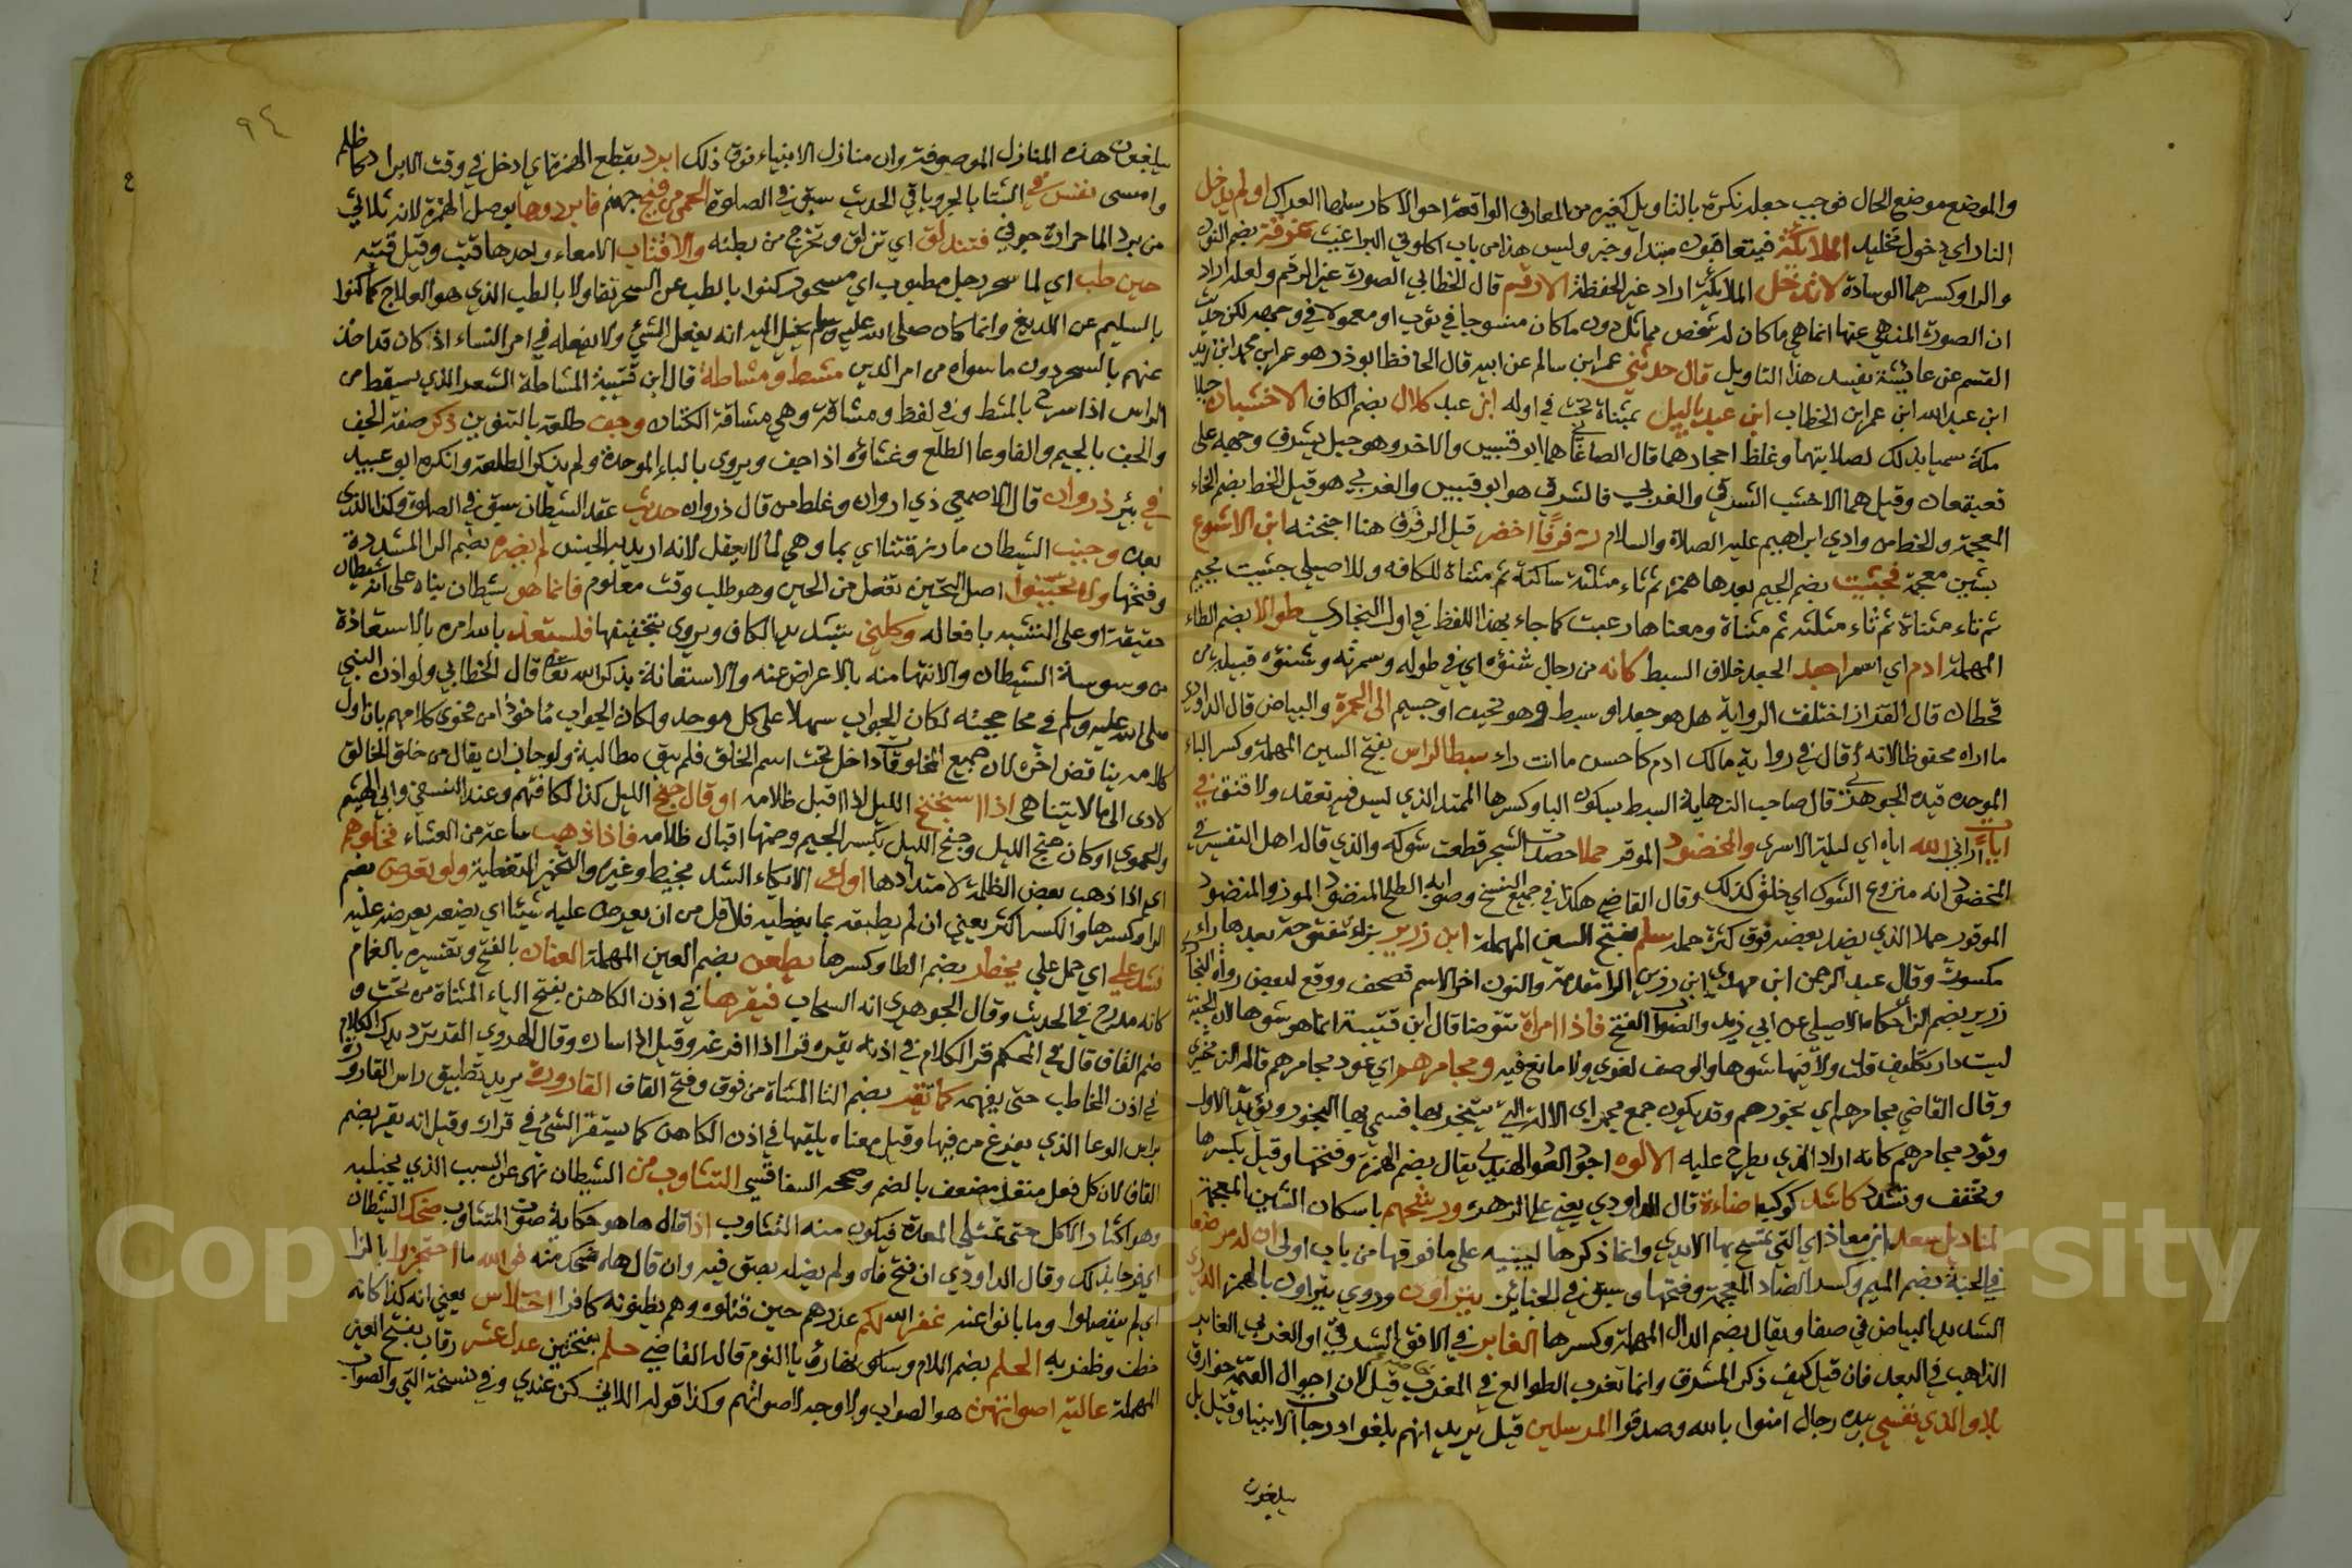 والموضع موضع الحال فوجب جعله نكرة بالتاويل كغيره من المعارف الواقعة احوالا كارسلها العراك او لم يدخل
النار اي دخول تخليد الملائكة فيتعاقبون مبتدا وخبر وليس هذا من باب اكلوني البراغيث غرقة بضم النون
والرا وكسرهما الوسادة لا تدخل الملائكة اراد غير الحفظة الا رقم قال الخطابي الصورة غير الرقم ولعله اراد
ان الصورة المنهي عنها انما هي ما كان له شخص مماثل دون ما كان منسوجا في ثوب او معمولا في وجهه لكن حديث
القسم عن عائشة يفسد هذا التاويل قال حدثني عمر ابن سالم عن ابيه قال الحافظ ابو ذر هو عمر ابن محمد ابن زيد
ابن عبد الله ابن عمر ابن الخطاب ابن عبد ياليل بمثناة تحت في اوله ابن عبد كلال بضم الكاف الاخشبان جبلا
مكة سميا بذلك لصلابتهما وغلظ احجارهما قال الصاغاني هما ابو قبيس والاخر وهو جبل يشرف وجهه على
قعيقعان وقيل هما الاخشب الشرقي والغربي فالشرقي هو ابو قبيس والغربي هو قبل الخط بضم الخاء
المعجمة والخط من وادي ابراهيم عليه الصلاة والسلام رفرفا اخضر قيل الرفرف هنا اجنحته ابن الاشوع
بشين معجمة فجئثت بضم الجيم بعدها همزة ثم ثاء مثلثة ساكنة ثم مثناة للكافه وللاصيلي جثيت بجيم
ثم ثاء مثناة ثم ثاء مثلثه ثم مثناة ومعناها رعبت كما جاء بهذا اللفظ في اول البخاري طوالا بضم الطاء
المهملة ادم اي اسمر اجعد الجعد خلاف السبط كانه من رجال شنؤه اي في طوله وسمرته وشنؤه قبيلة من
قحطان قال القزاز اختلفت الرواية هل هو جعد او سبط وهو نحيف او جسيم الى الحمرة والبياض قال الداودي
ما اراه محفوظا لانه قال في رواية مالك ادم كاحسن ما انت راء سبط الراس بفتح السين المهملة وكسر الباء
الموحده قيده الجوهري قال صاحب النهاية السبط بسكون البا وكسرها الممتد الذي ليس فيه تعقد ولا فتنق في
اياء اراني الله اياه اي ليلة الاسرى والمخضود الموقر حملا حصدت الشجر قطعت شوكه والذي قاله اهل التفسير في
المخضود انه منزوع الشوك اي خلق كذلك وقال القاضي هكذا في جميع النسخ وصوابه الطلح المنضود الموز والمنضود
الموقور حملا الذي نضد بعضه فوق كثرة حمله سلم بفتح السين المهملة ابن زرير بزاء مفتوحة بعدها راء
مكسورة وقال عبد الرحمن ابن مهدي ابن رزين الرا متقدمة والنون اخر الاسم تصحف ووقع لبعض رواة البخاري
زرير بضم الزا حكاه الاصيلي عن ابي زيد والصواب الفتح فاذا امراة تتوضا قال ابن قتيبة انما هو شوها لان الجنة
ليست دار تكليف قلت ولا فيها شوها والوصف لغوي ولا مانع فيه ومجامرهم اي عود مجامرهم قاله الزمخشري
وقال القاضي مجامرهم اي بخورهم وقد يكون جمع مجمر اي الالة التي يتبخر بها فسمي بها البخور ويؤيد الاول
وقود مجامرهم كانه اراد الذي يطرح عليه الالوه اجود العود الهندي يقال بضم الهمزة وفتحها وقيل بكسرها
وتخفف وتشدد كاشد كوكب اضاءة قال الداودي يعني على الزهرة ورشحهم باسكان الشين المعجمة
لمناديل سعد ابن معاذ اي التي تمسح بها الايدي وانما ذكرها لينبه على ما فوقها من باب اولى ان له مرضعا
في الجنة بضم الميم وكسر الضاد المعجمة وفتحها وسبق في الجنائز يتراون وروي يتراون بالهمز الدري
الشديد البياض في صفا ويقال بضم الدال المهملة وكسرها الغابر في الافق الشرقي او الغربي الغابر
الذاهب في البعد فان قيل كيف ذكر المشرق وانما تغرب الطوالع في المغرب قيل لان احوال القيمة خوارق
بلا والذي نفسي بيده رجال امنوا بالله وصدقوا المرسلين قيل يريد انهم يبلغوا درجات الانبيا وقيل بل
يبلغون
٩٤
يبلغون هذه المنازل الموصوفة وان منازل الانبياء فوق ذلك ابرد بقطع الهمزة اي ادخل في وقت الابراد كاظلم
وامسى نفس في الشتا بالجر وباقي الحديث سبق في الصلوة الحمى من فيح جهنم فابردوها بوصل الهمزة لانه ثلاثي
من برد الما حرارة جوفي فتندلق اي تزلق وتخرج من بطنه والاقتاب الامعاء واحدها قتب وقيل قتبه
حين طب اي لما سحر رجل مطبوب اي مسحور كنوا بالطب عن السحر تفاولا بالطب الذي هو العلاج كما كنوا
بالسليم عن اللديغ وانما كان صلى الله عليه وسلم يخيل اليه انه يفعل الشيء ولا يفعله في امر النساء اذ كان قد اخذ
عنهم بالسحر دون ما سواه من امر الدين مشط ومشاطة قال ابن قتيبة المشاطة الشعر الذي يسقط من
الراس اذا سرح بالمشط وفي لفظ ومشاقة وهي مشاقة الكتان وجف طلعة بالتنوين ذكر صفة الجف
والجف بالجيم والفا وعا الطلع وغشاؤه اذا جف ويروى بالباء الموحدة ولم يذكر الطلعة وانكره ابو عبيد
في بئر ذروان قال الاصمعي ذي اروان وغلط من قال ذروان حديث عقد الشيطان سبق في الصلوة وكذا الذي
بعده وجنب الشيطان ما رزقتنا اي بما وهي لما لا يعقل لانه اريد به الجنس لم يضره بضم الرا المشددة
وفتحها ولا تحينوا اصل التحين تفعل من الحين وهو طلب وقت معلوم فانما هو شيطان بناه على انه شيطان
حقيقة او على التشبيه بافعاله وكلني بتشديد الكاف ويروى بتخفيفها فليستعذ بالله امره بالاستعاذة
من وسوسة الشيطان والانتها منه بالاعراض عنه والاستعانة بذكر الله تعالى قال الخطابي ولو اذن النبي
صلى الله عليه وسلم في محاججته لكان الجواب سهلا على كل موحد ولكان الجواب ماخوذا من فحوى كلامهم بان اول
كلامه يناقض اخره لان جميع المخلوقات داخل تحت اسم الخلق فلم يبق مطالبة ولو جاز ان يقال من خلق الخالق
لادى الى ما لا يتناهى اذا استجنح الليل اذا اقبل ظلامه او قال جنح الليل كذا لكافتهم وعند النسفي وابي الهيثم
والحموي او كان جنح الليل وجنح الليل بكسر الجيم وضمها اقبال ظلامه فاذا ذهب ساعة من العشاء فخلوهم
اي اذا ذهب بعض الظلمة لامتدادها اوك الايكاء الشد بخيط وغيره والتخمير التغطية ولو تعرض بضم
الرا وكسرها والكسر اكثر يعني ان لم يطبقه بما يغطيه فلا اقل من ان يعرض عليه شيئا اي يضعه بعرضه عليه
فشد علي اي حمل علي يخطر بضم الطا وكسرها يطعن بضم العين المهملة العنان بالفتح وتفسيره بالغمام
كانه مدرج في الحديث وقال الجوهري انه السحاب فيقرها في اذن الكاهن بفتح الياء المثناة من تحت و
ضم القاف قال في المحكم قر الكلام في اذنه يقره قرا اذا افرغه وقيل اذا ساره وقال الهروي القر ترديدك الكلام
في اذن المخاطب حتى يفهمه كما تقر بضم التا المثناة من فوق وفتح القاف القارورة يريد تطبيق راس القارورة
براس الوعا الذي يفرغ من فيها وقيل معناه يلقيها في اذن الكاهن كما يستقر الشئ في قراره وقيل انه يقر بضم
القاف لان كل فعل متعد مضعف بالضم وصححه السفاقسي التثاوب من الشيطان نهى عن السبب الذي يجلبه
وهو اكثار الاكل حتى تمتلي المعدة فيكون منه التثاوب اذا قال ها هو حكاية صوت المتثاوب ضحك الشيطان
اي فرحا بذلك وقال الداودي ان فتح فاه ولم يضمه بصق فيه وان قال هاه ضحك منه فوالله ما احتجزوا بالزا
اي لم ينفصلوا وما بانوا عنه غفر الله لكم عذرهم حين قتلوه وهم يظنونه كافرا اختلاس يعني انه كذا كانه
خطف وظفر به الحلم بضم اللام وسكونها رؤيا النوم قاله القاضي حلم بفتحتين عدل عشر رقاب بفتح العين
المهملة عالية اصواتهن هو الصواب ولا وجه لاصواتهم وكذا قوله اللائي كن عندي وفي نسخة التي والصواب